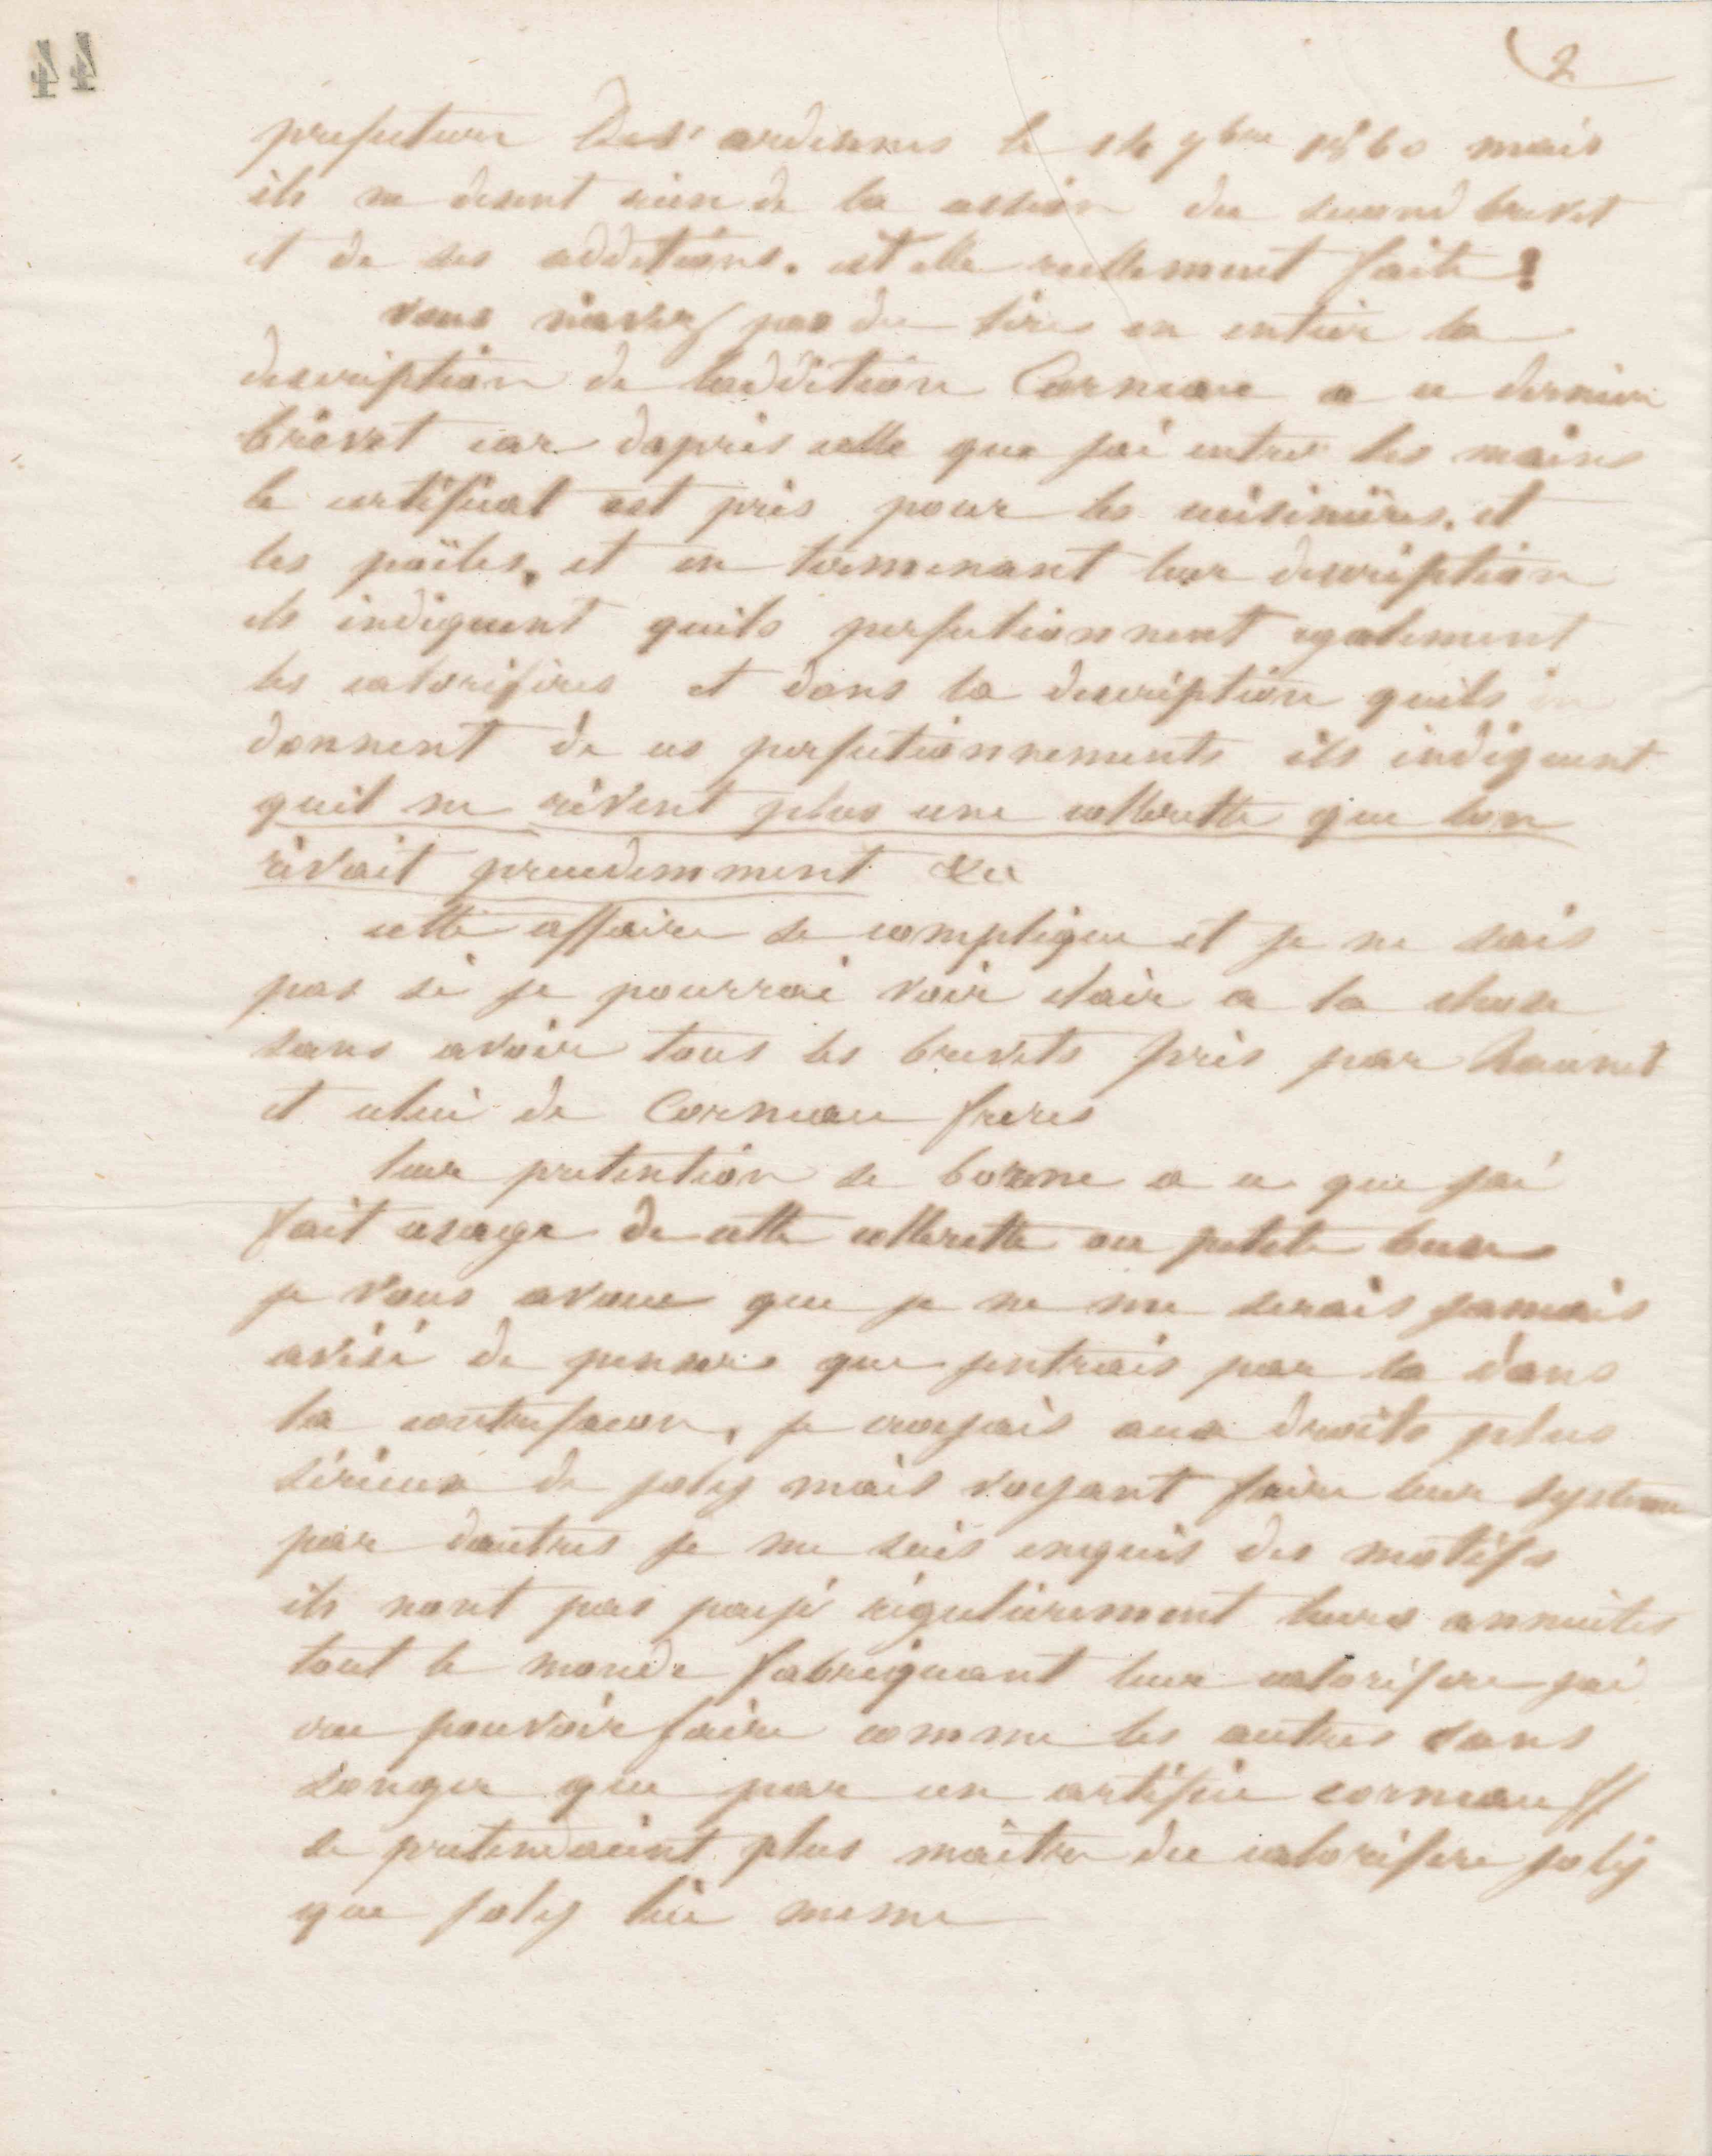 44
2
prefecture Des ardennes le 14 9bre 1860 mais
ils ne disent rien de la cession du second brevet
et de ses additions. est elle reellement faite ?
vous n'avez pas du lire en entier la
description de laddition Corneau a ce dernier
brevet car dapres celle que jai entre les mains
le certificat est pris pour les cuisinières. et
les poëles. et en terminant leur description
ils indiquent quils perfectionnent egalement
les calorifères et dans la description quils en
donnent de ces perfectionnements ils indiquent
quil ne rivent plus une collerette que lon
rivait precedemment &a
cette affaire se complique et je ne sais
pas si je pourrai voir clair a la chose
sans avoir tous les brevets pris par
et celui de Corneau freres
leur pretention se borne a ce que jai
fait usage de cette collerette ou petite buse
je vous avoue que je ne me serais jamais
avisé de penser que jentrais par la dans
la contrefacon, je croyais aux droits plus
sérieux de joly mais voyant faire leur systeme
par dautres je me suis enquis des motifs
ils nont pas payé régulièrement leurs annuites
tout le monde fabriquant leur calorifere jai
cru pouvoir faire comme les autres sans
songer que par un artifice corneau ff
se pretendaient plus maitre du calorifere joly
que joly lui meme